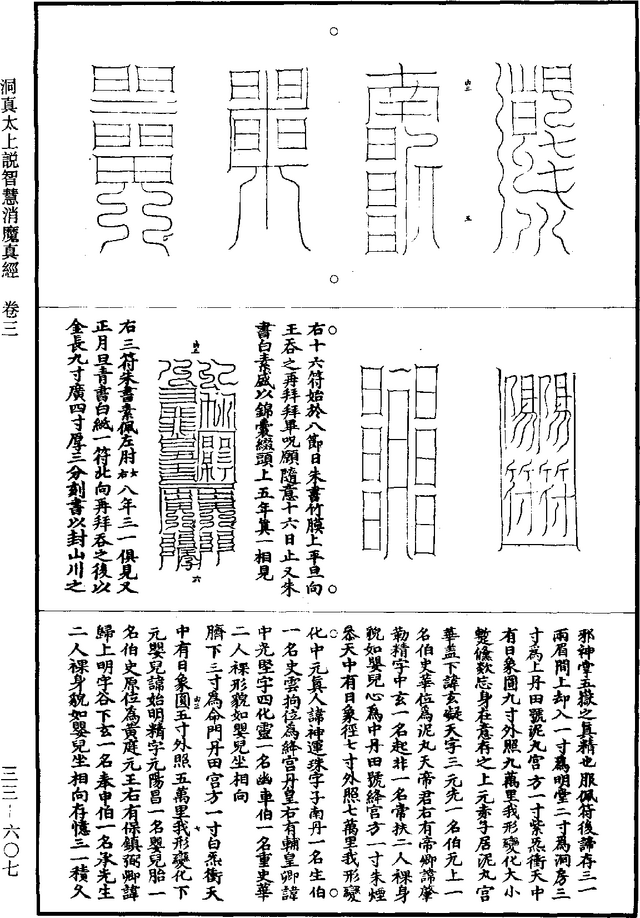 洞真太上説智慧消魔真經　卷三
三三—六〇七
右十六符始於八節日朱書竹膜上平旦向
王吞之再拜拜畢呪願隨意十六日止又朱
書白素盛以錦囊綴頭上五年真一相見
右三符朱書素佩左肘女右八年三一俱見又
正月旦青書白紙一符北向再拜吞之後以
金長九寸廣四寸厚三分刻書以封山川之
邪神堂五嶽之真精也服佩符後諦存三一
兩眉間上却入一寸為明堂二寸為洞房三
寸為上丹田號泥丸宮方一寸紫炁衝天中
有日象圓九寸外照九萬里我形變化大小
蹔倏歘忘身在意存之上元赤子居泥丸宮
華蓋下諱玄凝天字三元先一名伯元上一
名伯史華位為泥丸天帝君右有帝卿諱肇
勒精字中玄一名起非一名常扶二人裸身
貌如嬰兒心為中丹田號絳宮方一寸朱煙
叅天中有日象徑七寸外照七萬里我形變
化中元真人諱神運珠字子南丹一名生伯
一名史雲拘位為絳宮丹皇右有輔皇卿諱
中光堅字四化靈一名幽車伯一名董史華
二人裸形貌如嬰兒坐相向
臍下三寸為命門丹田宮方一寸白炁衝天
中有日象圓五寸外照五萬里我形變化下
元嬰兒諱始明精字元陽昌一名嬰兒胎一
名伯史原位為黃庭元王右有保鎮弼卿諱
歸上明字谷下玄一名奉申伯一名承先生
二人裸身貌如嬰兒坐相向存憶三一積久